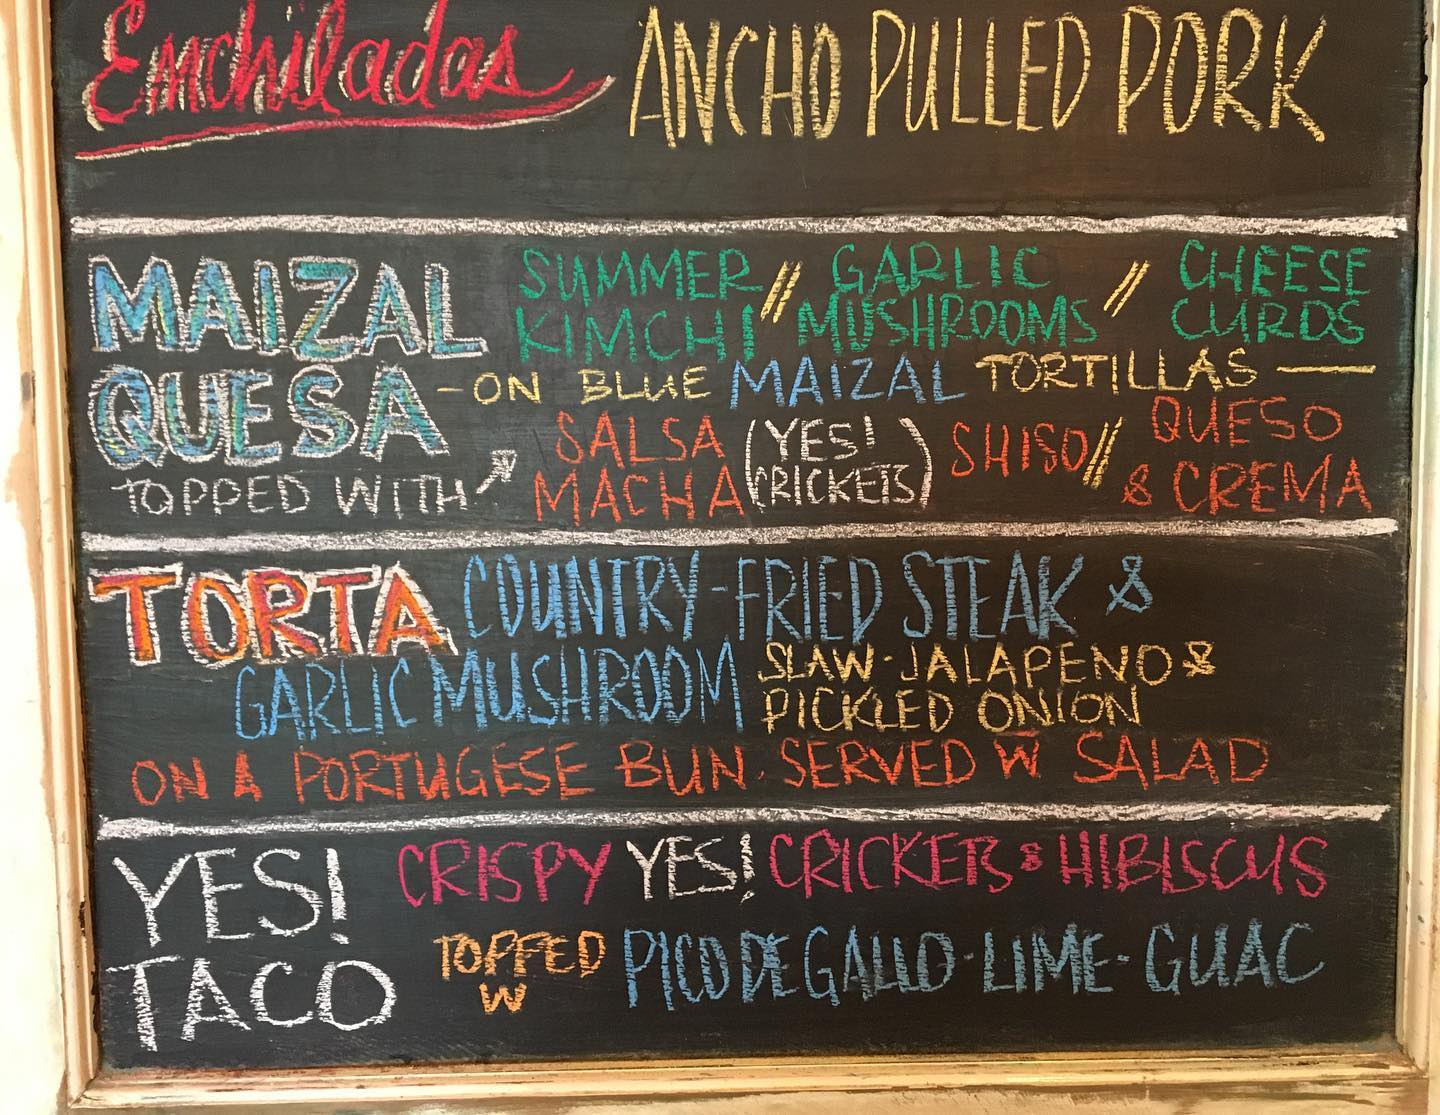 Enchiladas ANCHO PULLED PORK
MAIZAL SUMMER // GARLIC // CHEESE
KIMCHI MUSHROOMS CURDS
QUESA - ON BLUE MAIZAL TORTILLAS —
SALSA (YES! SHISO // QUESO
TOPPED WITH → MACHA CRICKETS) & CREMA
TORTA COUNTRY-FRIED STEAK &
GARLIC MUSHROOM SLAW - JALAPENO &
PICKLED ONION
ON A PORTUGESE BUN. SERVED W SALAD
YES! CRISPY YES! CRICKETS & HIBISCUS
TACO TOPPED PICO DE GALLO - LIME - GUAC
W